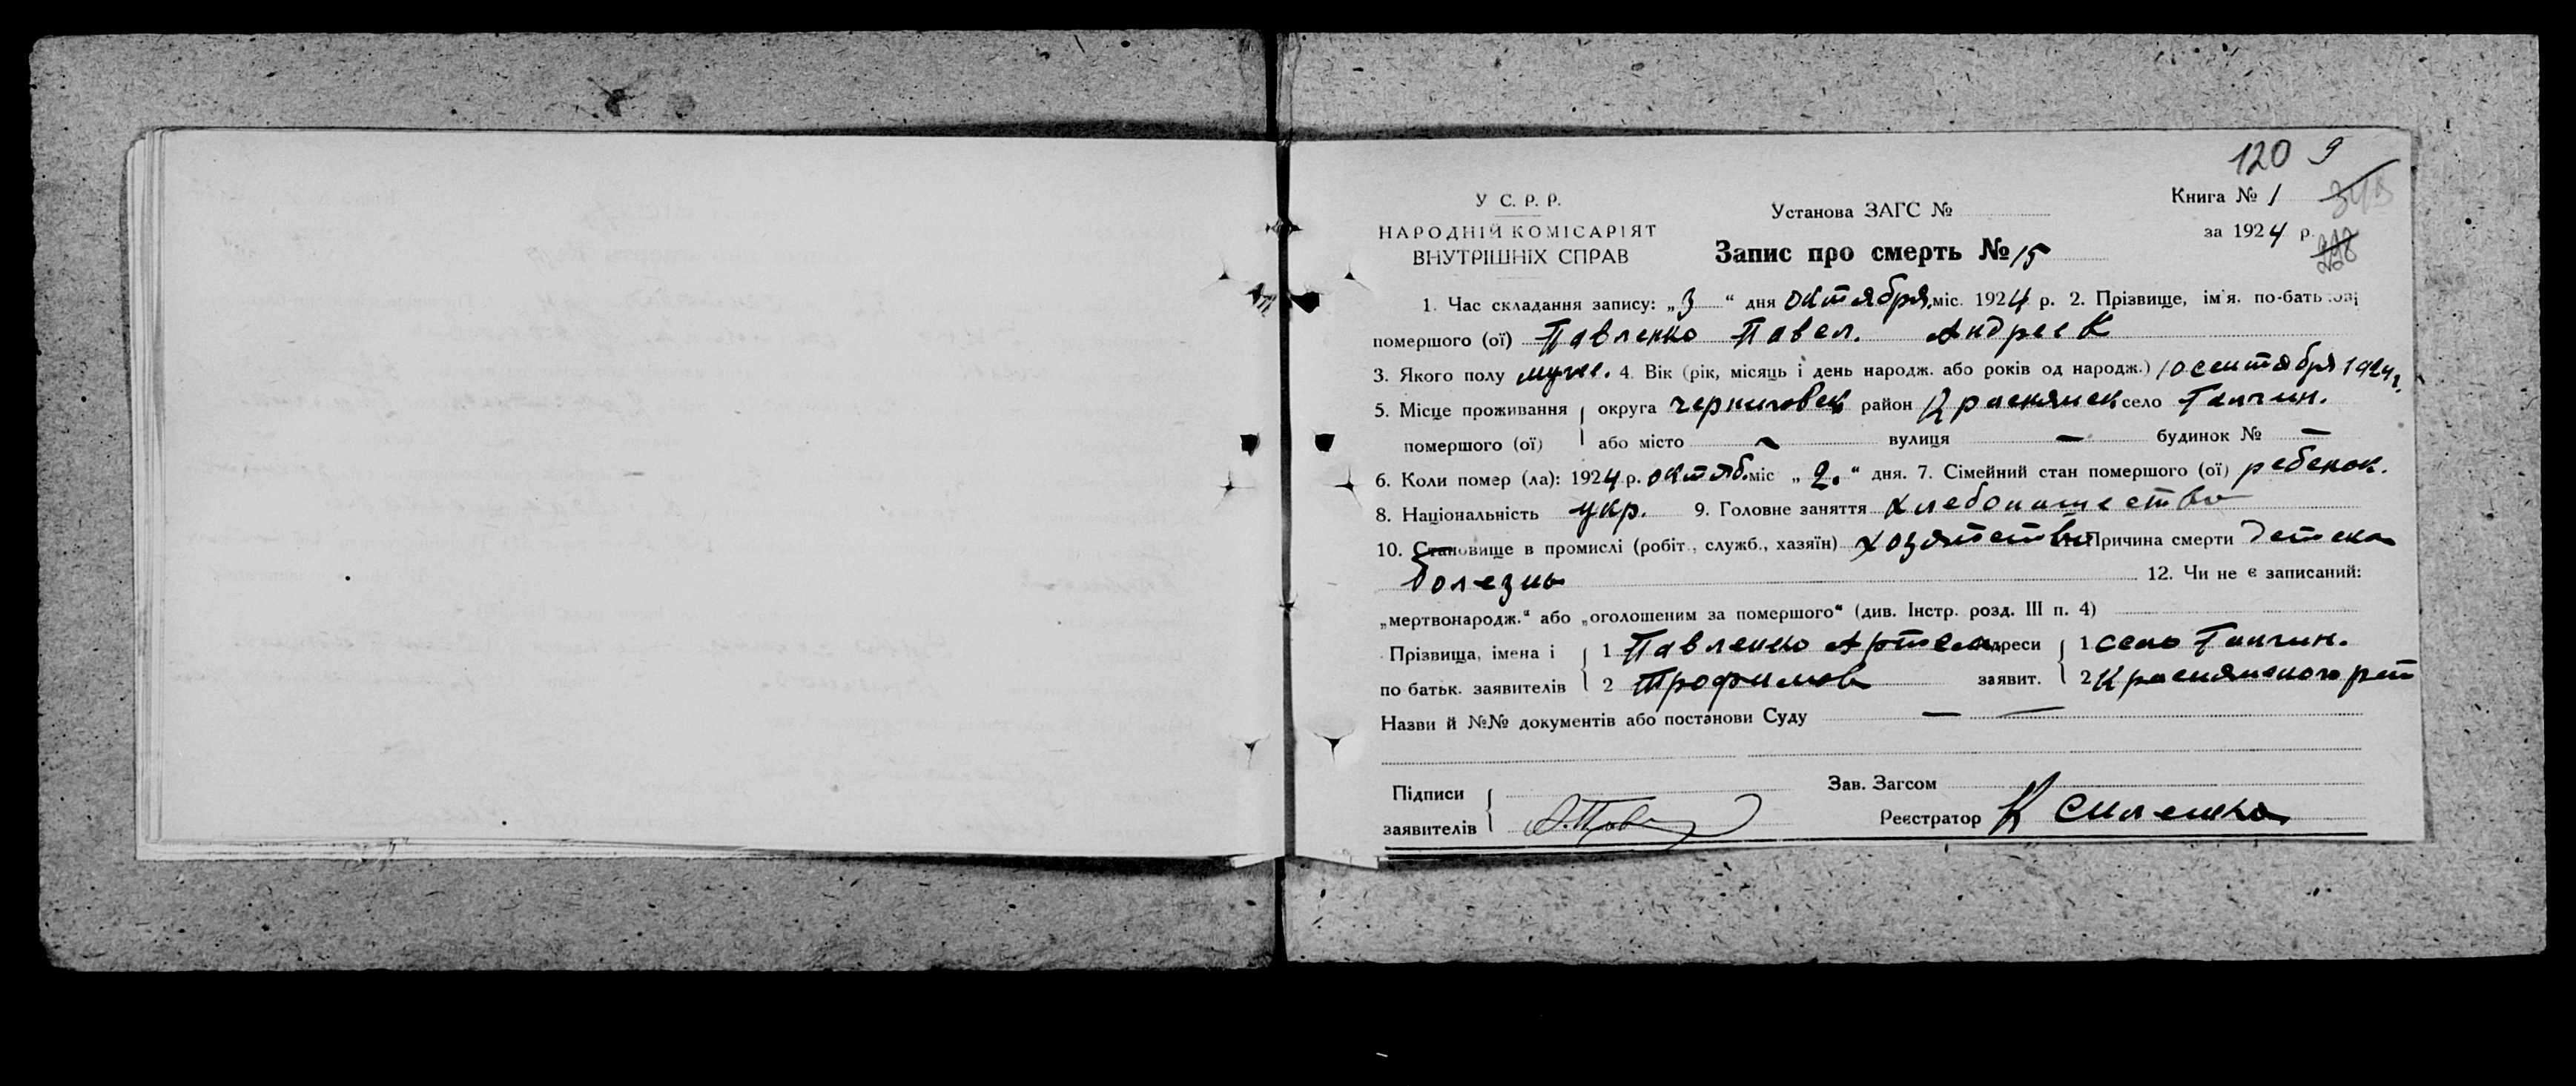 120 9
У С. Р. Р.
НАРОДНІЙ КОМІСАРІЯТ
ВНУТРІШНІХ СПРАВ
Установа ЗАГС №
Запис про смерть № 15
Книга № 1
за 1924 р.
1. Час складання запису: „3“ дня октября міс. 1924 р. 2. Прізвище, ім'я. по-батькові
помершого (ої) Павленко Павел. Андреев
3. Якого полу муж. 4. Вік (рік, місяць і день народж. або років од народж.) 10 сентября 1924 г.
5. Місце проживання округа Черниговск район село Тапчин.
помершого (ої) або місто ~ вулиця — будинок № —
6. Коли помер (ла): 1924 р. октяб. міс „2.“ дня. 7. Сімейний стан помершого (ої) ребенок.
8. Національність укр. 9. Головне заняття хлебопашество
10. Становище в промислі (робіт., служб., хазяїн) Причина смерти Детска
болезнь 12. Чи не є записаний:
„мертвонародж.“ або „оголошеним за помершого“ (див. Інстр. розд. III п. 4)
Прізвища, імена і 1 Павленко Артем адреси 1 село Тапчин.
по батьк. заявителів 2 Трофимов заявит. 2
Назви й №№ документів або постанови Суду — —
Підписи Зав. Загсом
заявителів Реєстратор